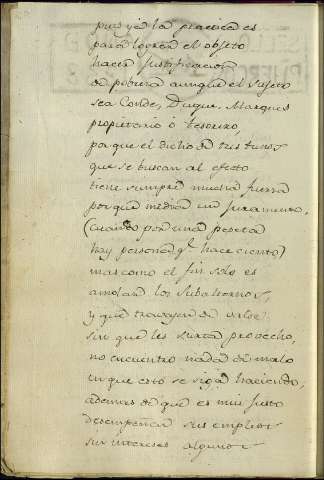 pues ya la practica es
para lograr el objeto
hacer justificacion
de pobreza aunque el sujeto
sea Conde, Duque, Marques
propietario ò tesorero,
porque el dicho de tres tunos
que se buscan al efecto
tiene siempre mucha fuerza
porque media un juramento,
(cuando por una peseta
hay persona q.e hace ciento)
mas como el fin solo es
amolar los subalternos,
y que travajen de valde
sin que les surta provecho,
no encuentro nada de malo
en que esto se siga haciendo,
ademas de que es muy justo
desempeñar sus empleos
sin intereses algunos